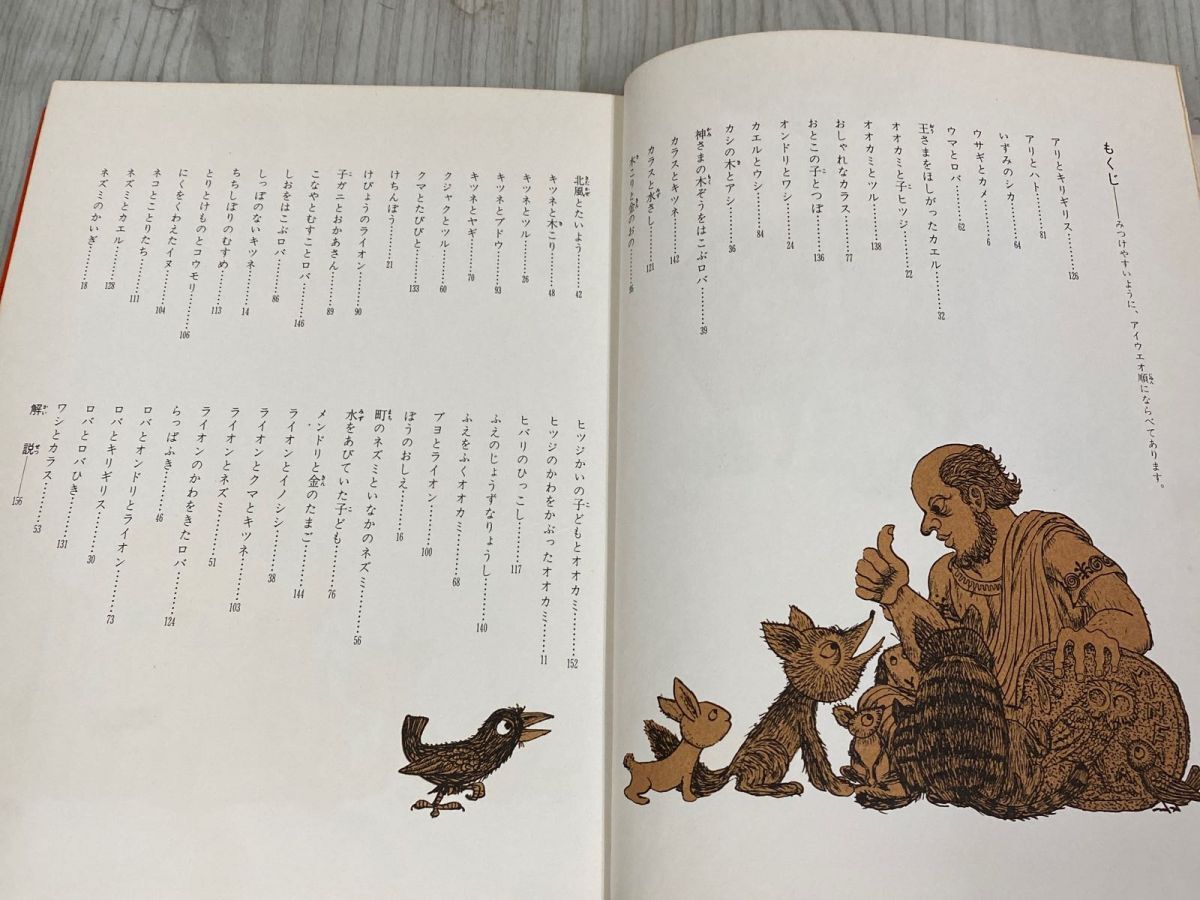 もくじ――みつけやすいように、アイウエオ順にならべてあります。
アリとキリギリス………126
アリとハト………81
いずみのシカ………64
ウサギとカメ………6
ウマとロバ………62
王さまをほしがったカエル………32
オオカミと子ヒツジ………22
オオカミとツル………138
おしゃれなカラス………77
おとこの子とつぼ………136
オンドリとワシ………24
カエルとウシ………84
カシの木とアシ………36
神さまの木ぞうをはこぶロバ………39
カラスとキツネ………142
カラスと水さし………121
木こりと金のおの………
北風とたいよう………42
キツネと木こり………48
キツネとツル………26
キツネとブドウ………93
キツネとヤギ………70
クジャクとツル………60
クマとたびびと………133
けちんぼう………21
けびょうのライオン………90
子ガニとおかあさん………89
こなやとむすことロバ………146
しおをはこぶロバ………86
しっぽのないキツネ………14
ちちしぼりのむすめ………113
とりとけものとコウモリ………106
にくをくわえたイヌ………104
ネコとことりたち………111
ネズミとカエル………128
ネズミのかいぎ………18
ヒツジかいの子どもとオオカミ………152
ヒツジのかわをかぶったオオカミ………11
ヒバリのひっこし………117
ふえのじょうずなりょうし………140
ふえをふくオオカミ………68
ブヨとライオン………100
ぼうのおしえ………16
町のネズミといなかのネズミ………56
水をあびていた子ども………76
メンドリと金のたまご………144
ライオンとイノシシ………38
ライオンとクマとキツネ………103
ライオンとネズミ………51
ライオンのかわをきたロバ………124
らっぱふき………46
ロバとオンドリとライオン………73
ロバとキリギリス………30
ロバとロバひき………131
ワシとカラス………53
解説――156